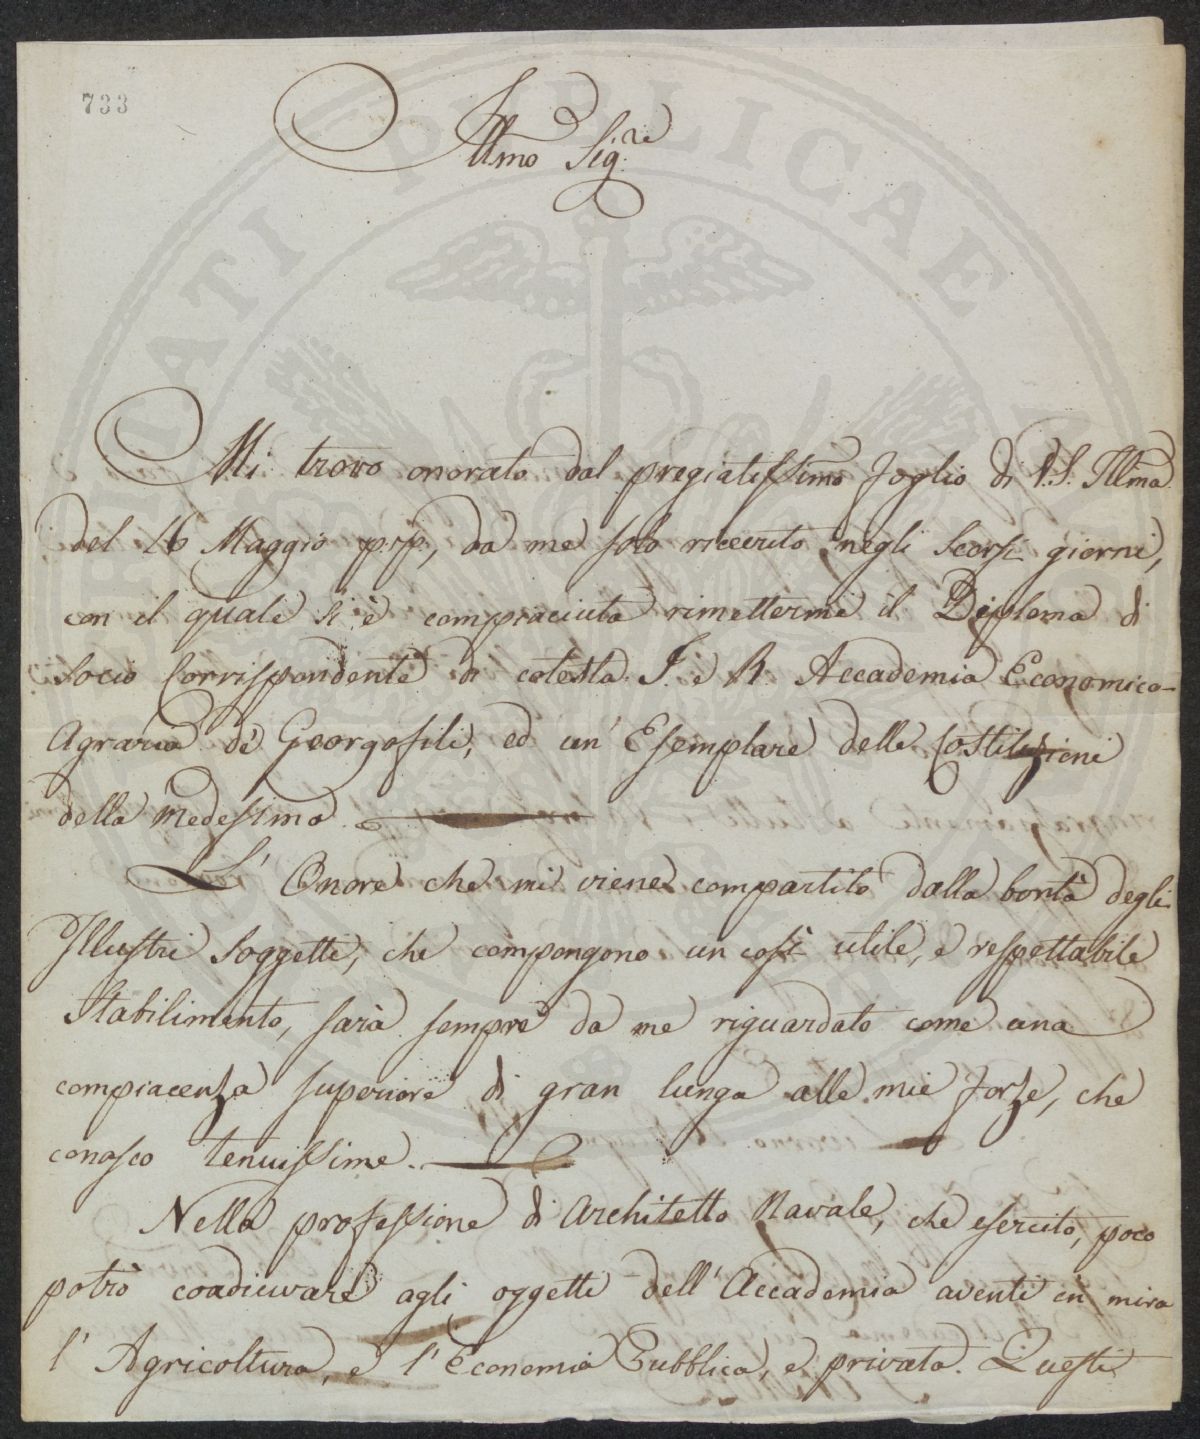 733
Illmo Sig.re
Mi trovo onorato dal pregiatissimo foglio di V.S. Illma
del 16 Maggio psp, da me solo ricevuto negli scorsi giorni,
con il quale si è compiaciuta rimettermi il Diploma di
Socio Corrispondente di cotesta I. e R. Accademia Economico-
Agraria de' Georgofili, ed un' Esemplare delle Costituzioni
della medesima.
L' Onore che mi viene compartito dalla bontà degli
Illustri Soggetti, che compongono un così utile, e respettabile
Stabilimento, sarà sempre da me riguardato come una
compiacenza superiore di gran lunga alle mie forze, che
conosco tenuissime.
Nella professione di Architetto Navale, che esercito, poco
potrò coadiuvare agli oggetti dell' Accademia aventi in mira
l' Agricoltura, e l' Economia Pubblica, e privata. Questi